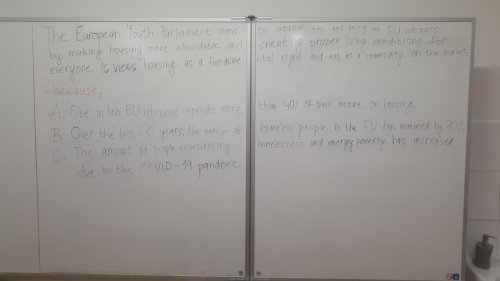 The European Youth Parliament aims to improve the well-being of EU citizens
by making housing more affordable and creating proper living conditions for
everyone. It views housing as a fundamental right and not as a commodity on the market,
because,
A. One in ten EU citizens spends more than 40% of their income on housing,
B. Over the last years, the number of homeless people in the EU has increased by 70%,
C. The amount of people experiencing homelessness and energy poverty has increased
due to the COVID-19 pandemic